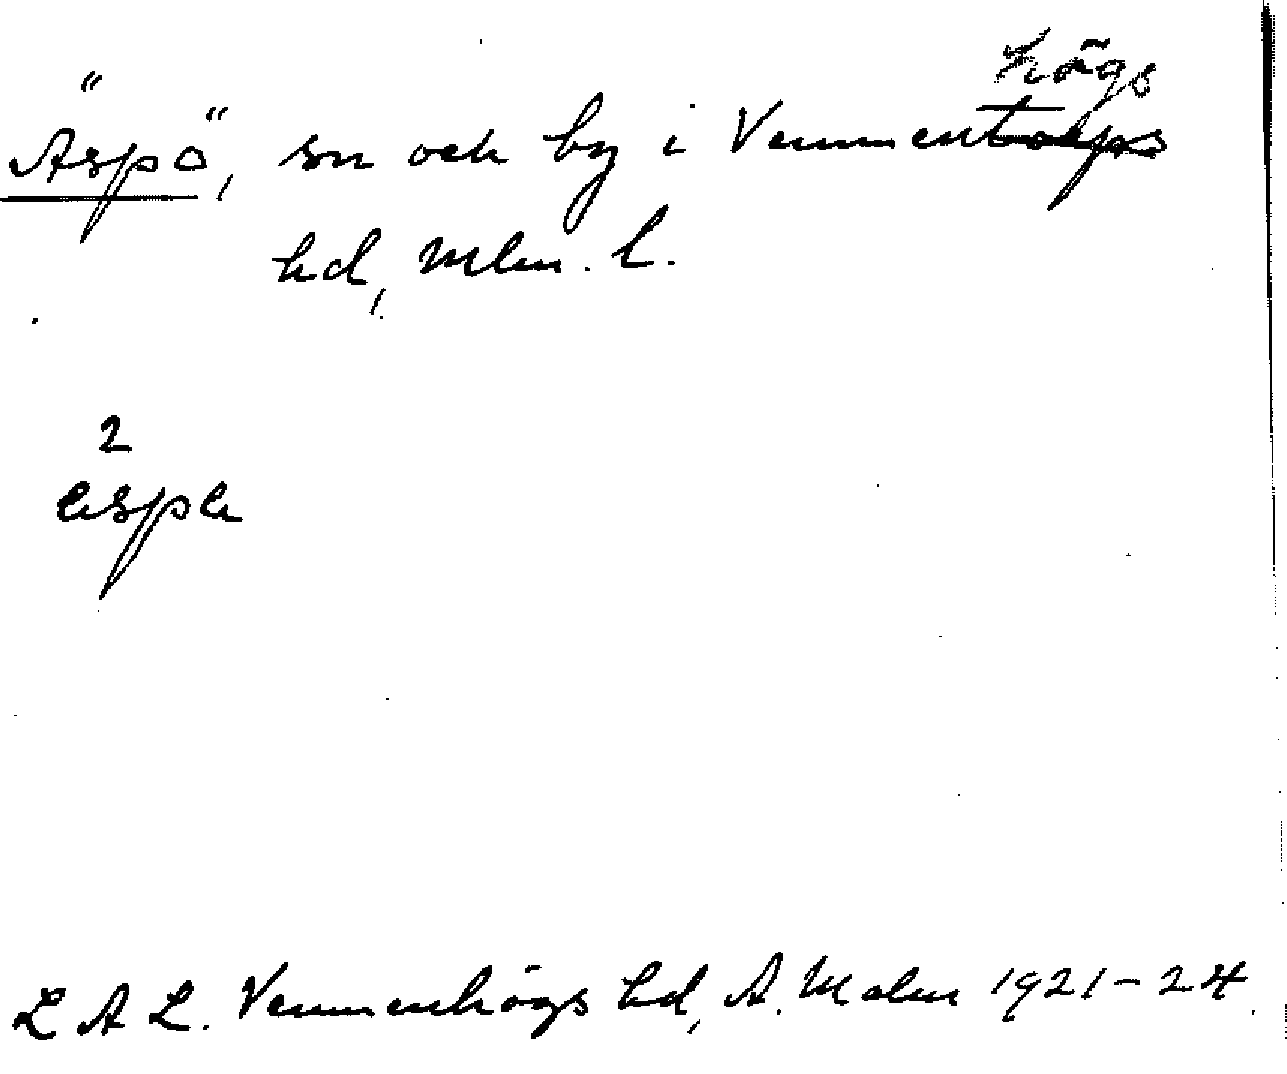 högs
Äspö, sn och by i Vemmentorps
hd, Mlm. l.
2
espe
L A L. Vemmenhögs hd, A. Malm 1921-24.